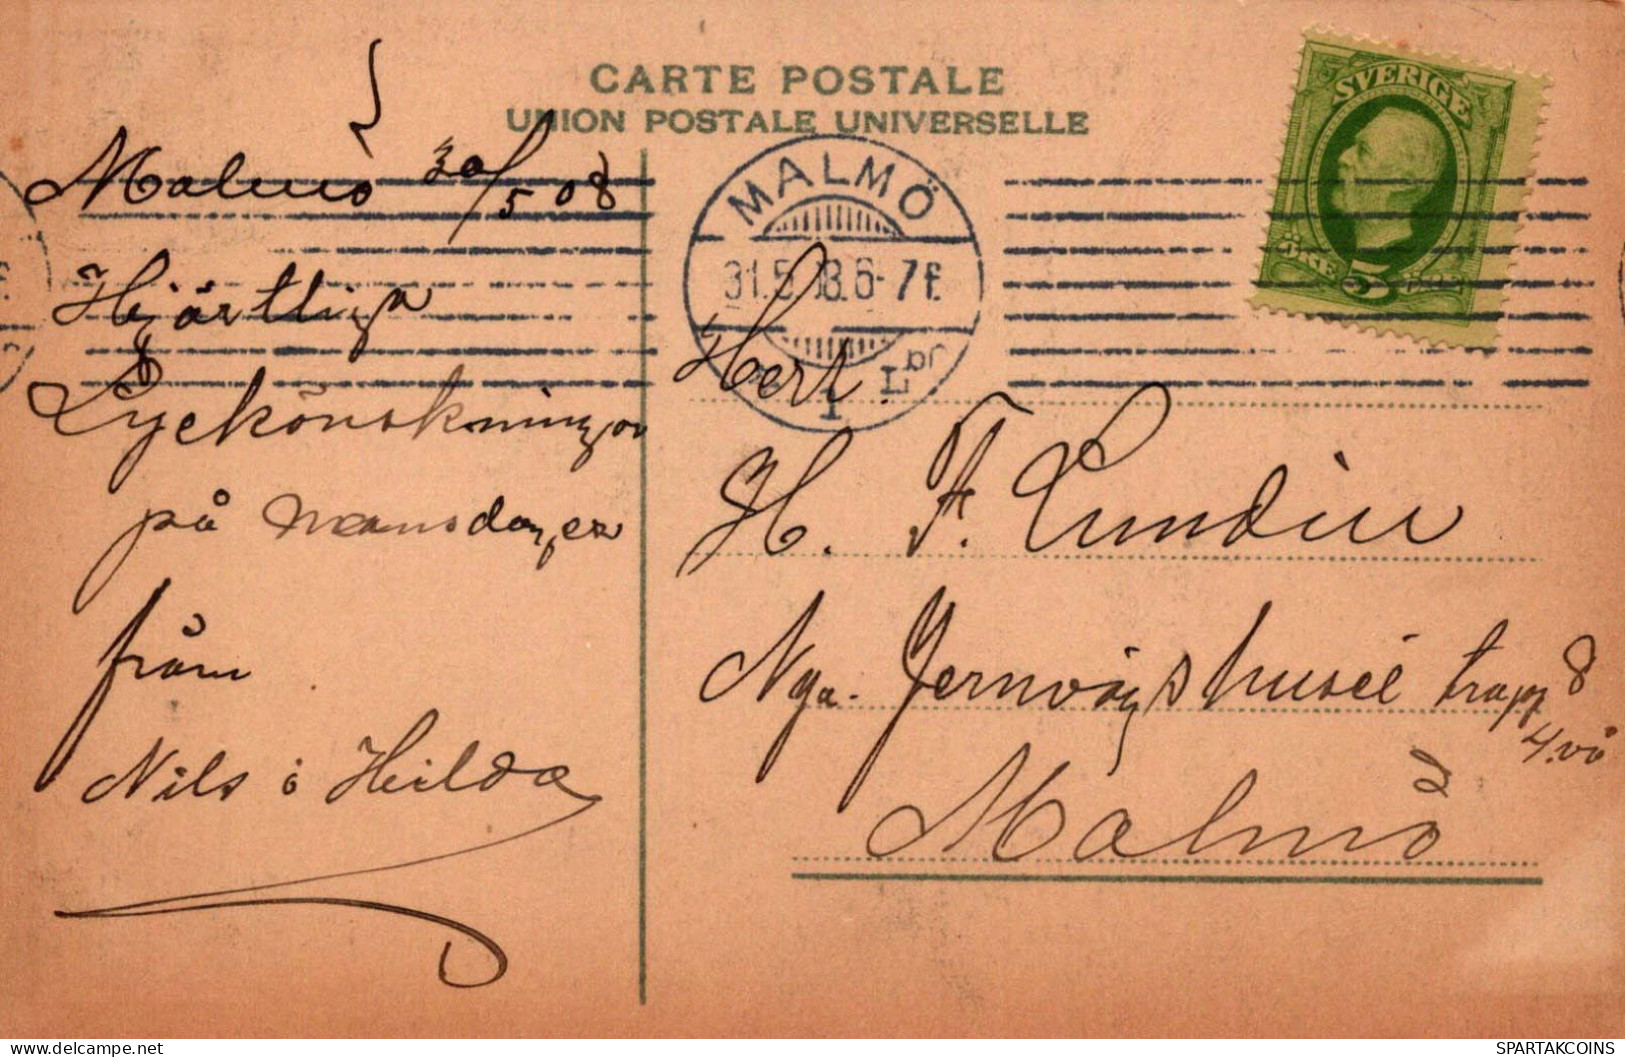 CARTE POSTALE
UNION POSTALE UNIVERSELLE
SVERIGE
ÖRE 5 ÖRE
MALMÖ
31.5.08.6-7 f.
1 LBR
Malmö 30/5 08
Hjärtliga
Lyckönskningar
på namnsdagen
från
Nils o Hilda
Herr.
H. F. Lundin
Nya. Jernvägshuset trapp 8
4. vå
Malmö
SPARTAKCOINS